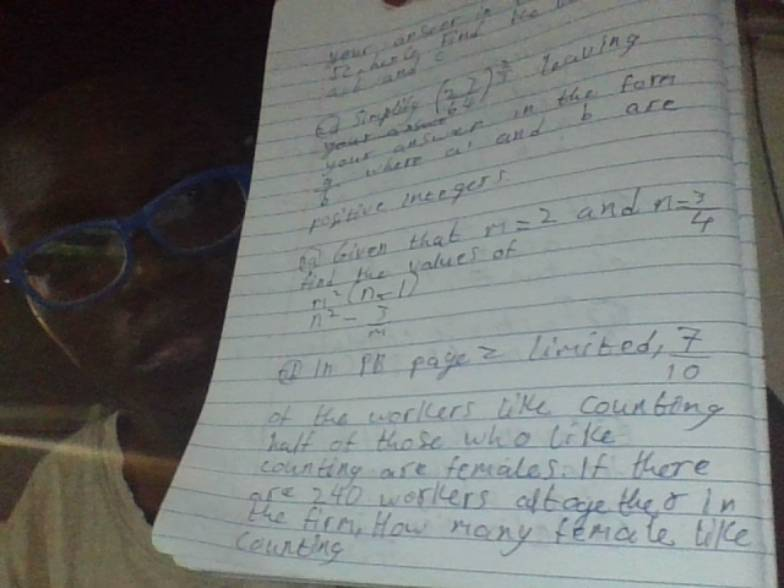 your answer in
find the
a, b and c
Simplify (27/64)^2/3 leaving
your answer
your answer in the form
a/b where a, and b are
positive integers.
a) Given that m=2 and n=3/4
find the values of
m²(n-1)
n² - 3/m
In PB page 2 limited, 7/10
of the workers like counting
half of those who like
counting are females. If there
are 240 workers altogether in
the firm, How many female like
counting